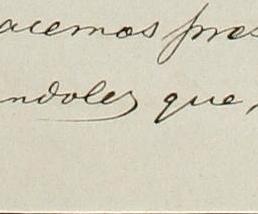 acemos pres
ndoles que,